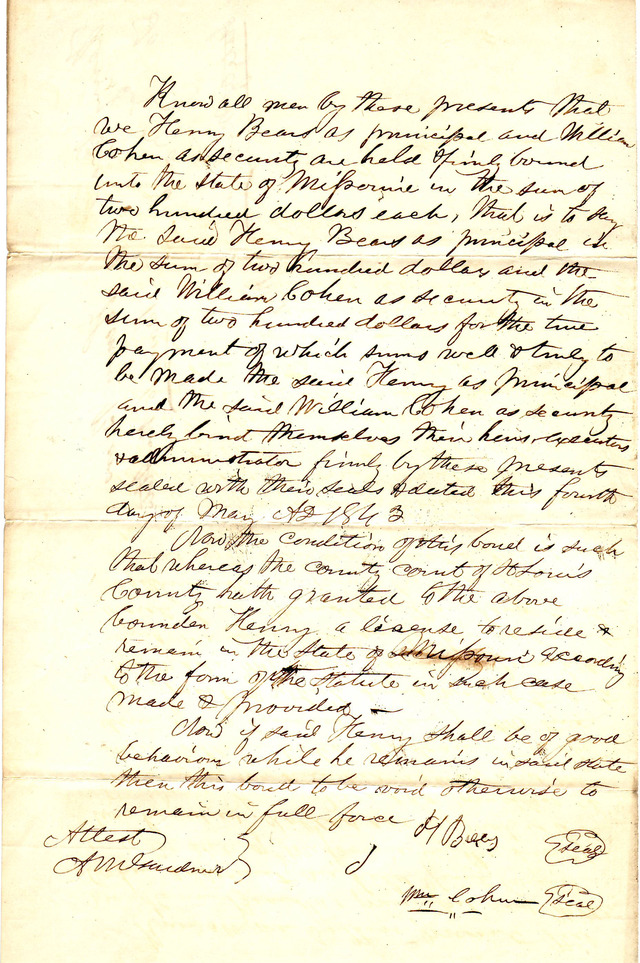 Know all men by these presents that
we Henry Bears as principal and William
Cohen as security are held & firmly bound
unto the State of Missourie in the sum of
two hundred dollars each, that is to say
the said Henry Bears as principal in
the sum of two hundred dollars and the
said William Cohen as security in the
sum of two hundred dollars for the true
payment of which sums well & truly to
be made the said Henry as principal
and the said William Cohen as security
hereby bind themselves their heirs executors
& administrator firmly by these presents
sealed with their seals & dated this fourth
day of May AD 1843
Now the condition of this bond is such
that whereas the county court of St Louis
County hath granted to the above
bounden Henry a license to reside &
remain in the State of Missouri according
to the form of the statute in such case
made & provided —
Now if said Henry shall be of good
behaviour while he remains in said state
then this bond to be void otherwise to
remain in full force
H Bears Seal
Attest
Wm Cohen Seal